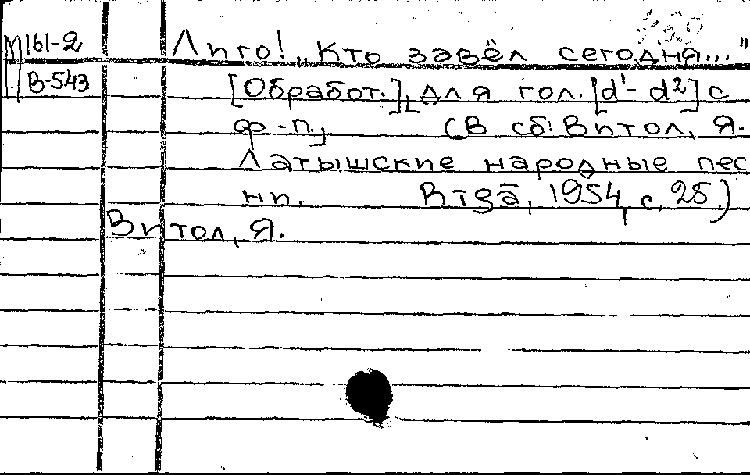 М 161-2 Лиго! „Кто завёл сегодня..."
В-543 [Обработ.], для гол. [d¹- d²] с
ф.-п., (В сб: Витол, Я.
Латышские народные пес
ни. 1954, с. 25.)
Витол, Я.